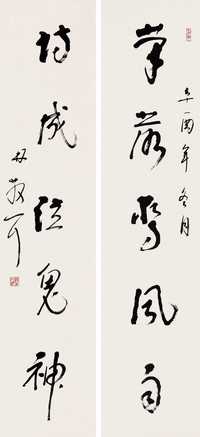 辛酉年冬月
筆落驚風雨
詩成泣鬼神
林散耳